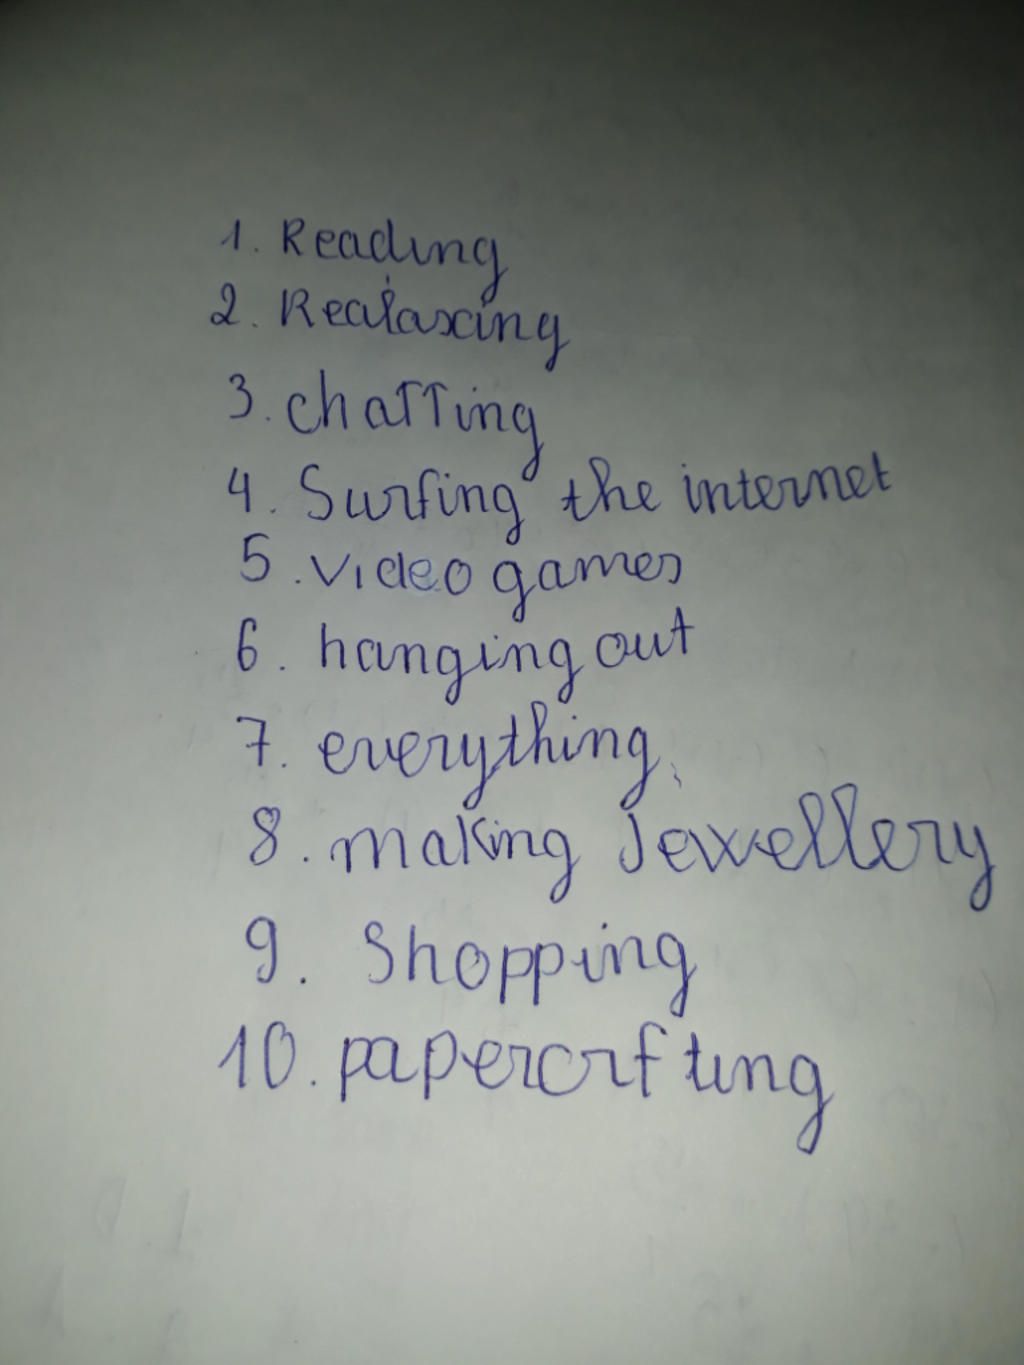 1. Reading
2. Realaxing
3. chatting
4. Surfing the internet
5. video games
6. hanging out
7. everything
8. making Jewellery
9. Shopping
10. papercrfting